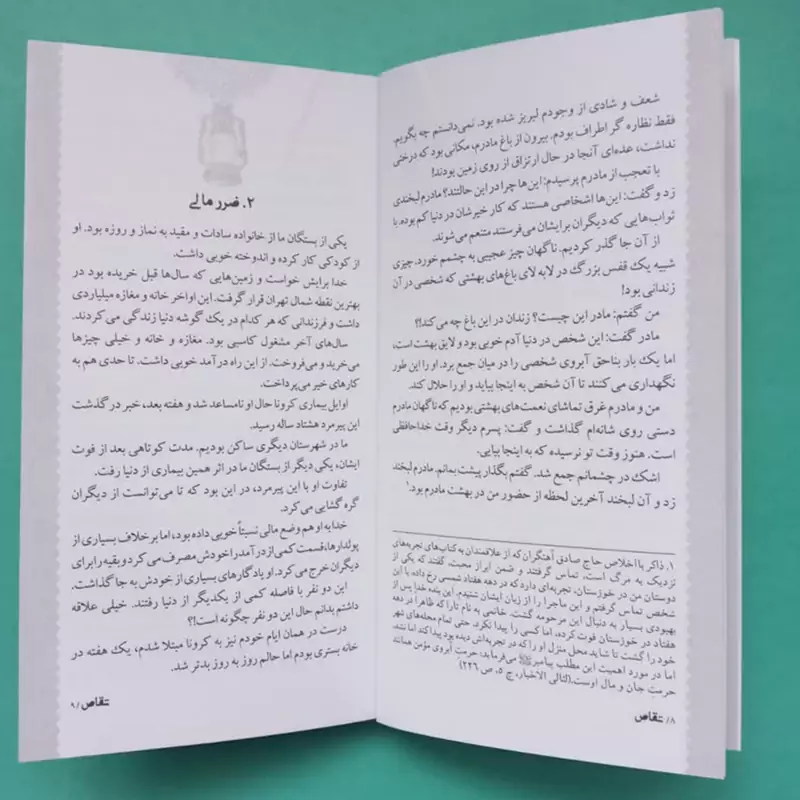 شعف و شادی از وجودم لبریز شده بود. نمی‌دانستم چه بگویم.
فقط نظاره گر اطراف بودم. بیرون از باغ مادرم، مکانی بود که درختی
نداشت، عده‌ای آنجا در حال ارتزاق از روی زمین بودند!
با تعجب از مادرم پرسیدم: این‌ها چرا در این حالتند؟ مادرم لبخندی
زد و گفت: این‌ها اشخاصی هستند که کار خیرشان در دنیا کم بوده. با
ثواب‌هایی که دیگران برایشان می‌فرستند متنعم می‌شوند.
از آن جا گذر کردیم. ناگهان چیز عجیبی به چشمم خورد. چیزی
شبیه یک قفس بزرگ در لابه لای باغ‌های بهشتی که شخصی در آن
زندانی بود!
من گفتم: مادر این چیست؟ زندان در این باغ چه می‌کند!؟
مادر گفت: این شخص در دنیا آدم خوبی بود و لایق بهشت است،
اما یک بار بناحق آبروی شخصی را در میان جمع برد. او را این طور
نگهداری می‌کنند تا آن شخص به اینجا بیاید و او را حلال کند.
من و مادرم غرق تماشای نعمت‌های بهشتی بودیم که ناگهان مادرم
دستی روی شانه‌ام گذاشت و گفت: پسرم دیگر وقت خداحافظی
است. هنوز وقت تو نرسیده که به اینجا بیایی.
اشک در چشمانم جمع شد. گفتم بگذار پیشت بمانم. مادرم لبخند
زد و آن لبخند آخرین لحظه از حضور من در بهشت مادرم بود.۱
۱. ذاکر با اخلاص حاج صادق آهنگران که از علاقمندان به کتاب‌های تجربه‌های
نزدیک به مرگ است، تماس گرفتند و ضمن ابراز محبت، گفتند که یکی از
دوستان من در خوزستان، تجربه‌ای دارد که در دهه هفتاد شمسی رخ داده. با این
شخص تماس گرفتم و این ماجرا را از زبان ایشان شنیدم. این بنده خدا پس از
بهبودی بسیار به دنبال این مرحومه گشت. خانمی به نام تارا که ظاهراً در دهه
هفتاد در خوزستان فوت کرده، اما کسی را پیدا نکرد. حتی تمام محله‌های شهر
خود را گشت تا شاید محل منزل او را که در تجربه‌اش دیده بود پیدا کند اما نشد.
اما در مورد اهمیت این مطلب پیامبرﷺ می‌فرماید: حرمت آبروی مؤمن همانند
حرمت جان و مال اوست.(لئالی الاخبار، ج ۵، ص ۲۲۶)
۸/ تقاص
۲. ضرر مالی
یکی از بستگان ما از خانواده سادات و مقید به نماز و روزه بود. او
از کودکی کار کرده و اندوخته خوبی داشت.
خدا برایش خواست و زمین‌هایی که سال‌ها قبل خریده بود در
بهترین نقطه شمال تهران قرار گرفت. این اواخر خانه و مغازه میلیاردی
داشت و فرزندانی که هر کدام در یک گوشه دنیا زندگی می‌کردند.
سال‌های آخر مشغول کاسبی بود. مغازه و خانه و خیلی چیزها
می‌خرید و می‌فروخت. از این راه درآمد خوبی داشت. تا حدی هم به
کارهای خیر می‌پرداخت.
اوایل بیماری کرونا حال او نامساعد شد و هفته بعد، خبر در گذشت
این پیرمرد هشتاد ساله رسید.
ما در شهرستان دیگری ساکن بودیم. مدت کوتاهی بعد از فوت
ایشان، یکی دیگر از بستگان ما در اثر همین بیماری از دنیا رفت.
تفاوت او با این پیرمرد، در این بود که تا می‌توانست از دیگران
گره گشایی می‌کرد.
خدا به او هم وضع مالی نسبتاً خوبی داده بود، اما بر خلاف بسیاری از
پولدارها، قسمت کمی از درآمد را خودش مصرف می‌کرد و بقیه را برای
دیگران خرج می‌کرد. او یادگارهای بسیاری از خودش به جا گذاشت.
این دو نفر با فاصله کمی از یکدیگر از دنیا رفتند. خیلی علاقه
داشتم بدانم حال این دو نفر چگونه است!؟
درست در همان ایام خودم نیز به کرونا مبتلا شدم، یک هفته در
خانه بستری بودم اما حالم روز به روز بدتر شد.
تقاص /۹